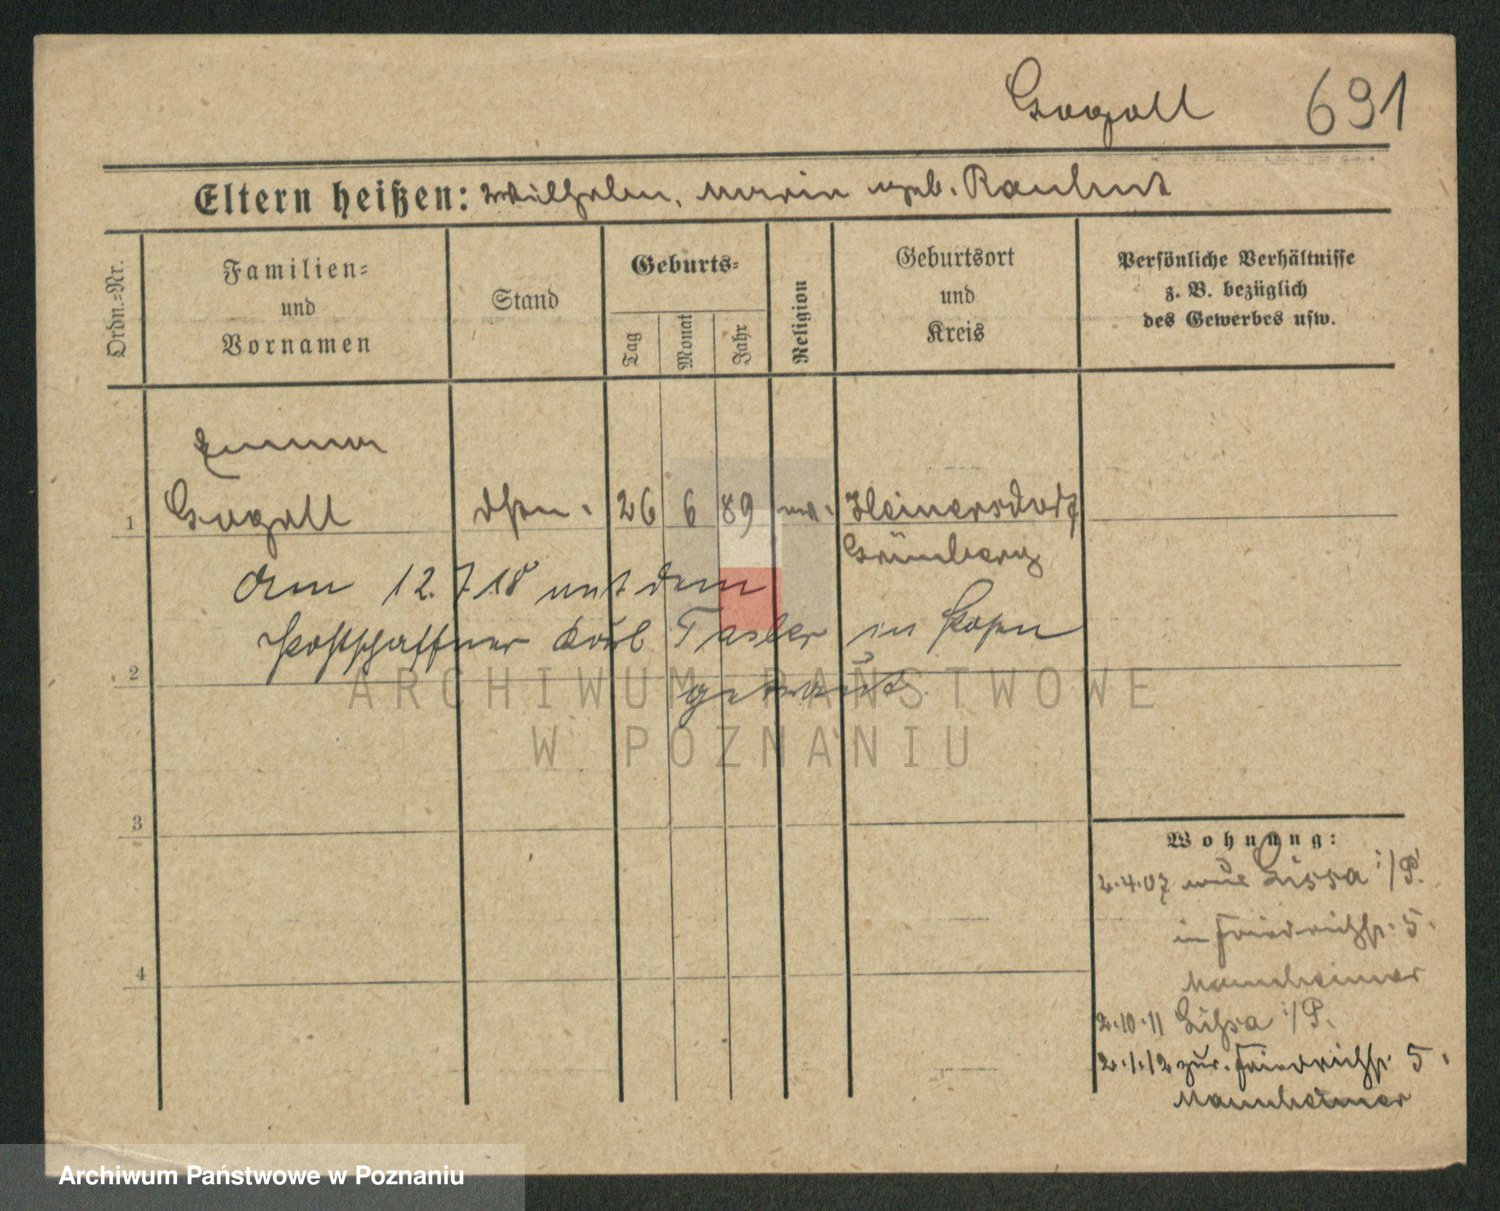 Gogoll 691
Eltern heißen: Wilhelm, Maria geb. Rauhut
Ordn.=Nr.
Familien=
und
Vornamen
Stand
Geburts=
Tag
Monat
Jahr
Religion
Geburtsort
und
Kreis
Persönliche Verhältnisse
z. B. bezüglich
des Gewerbes usw.
Emma
1 Gogoll 26 6 89 Heinersdorf
Grünberg
Am 12.7 18 mit dem
Postschaffner Karl Tasler in Posen
2
getraut
3
4
Wohnung:
2.4.07 Lissa i/P.
in Friedrichstr. 5.
Mannheimer
2.10.11 Lissa i/P.
2.1.12 zur. Friedrichstr. 5.
Mannheimer
ARCHIWUM PAŃSTWOWE
W POZNANIU
Archiwum Państwowe w Poznaniu